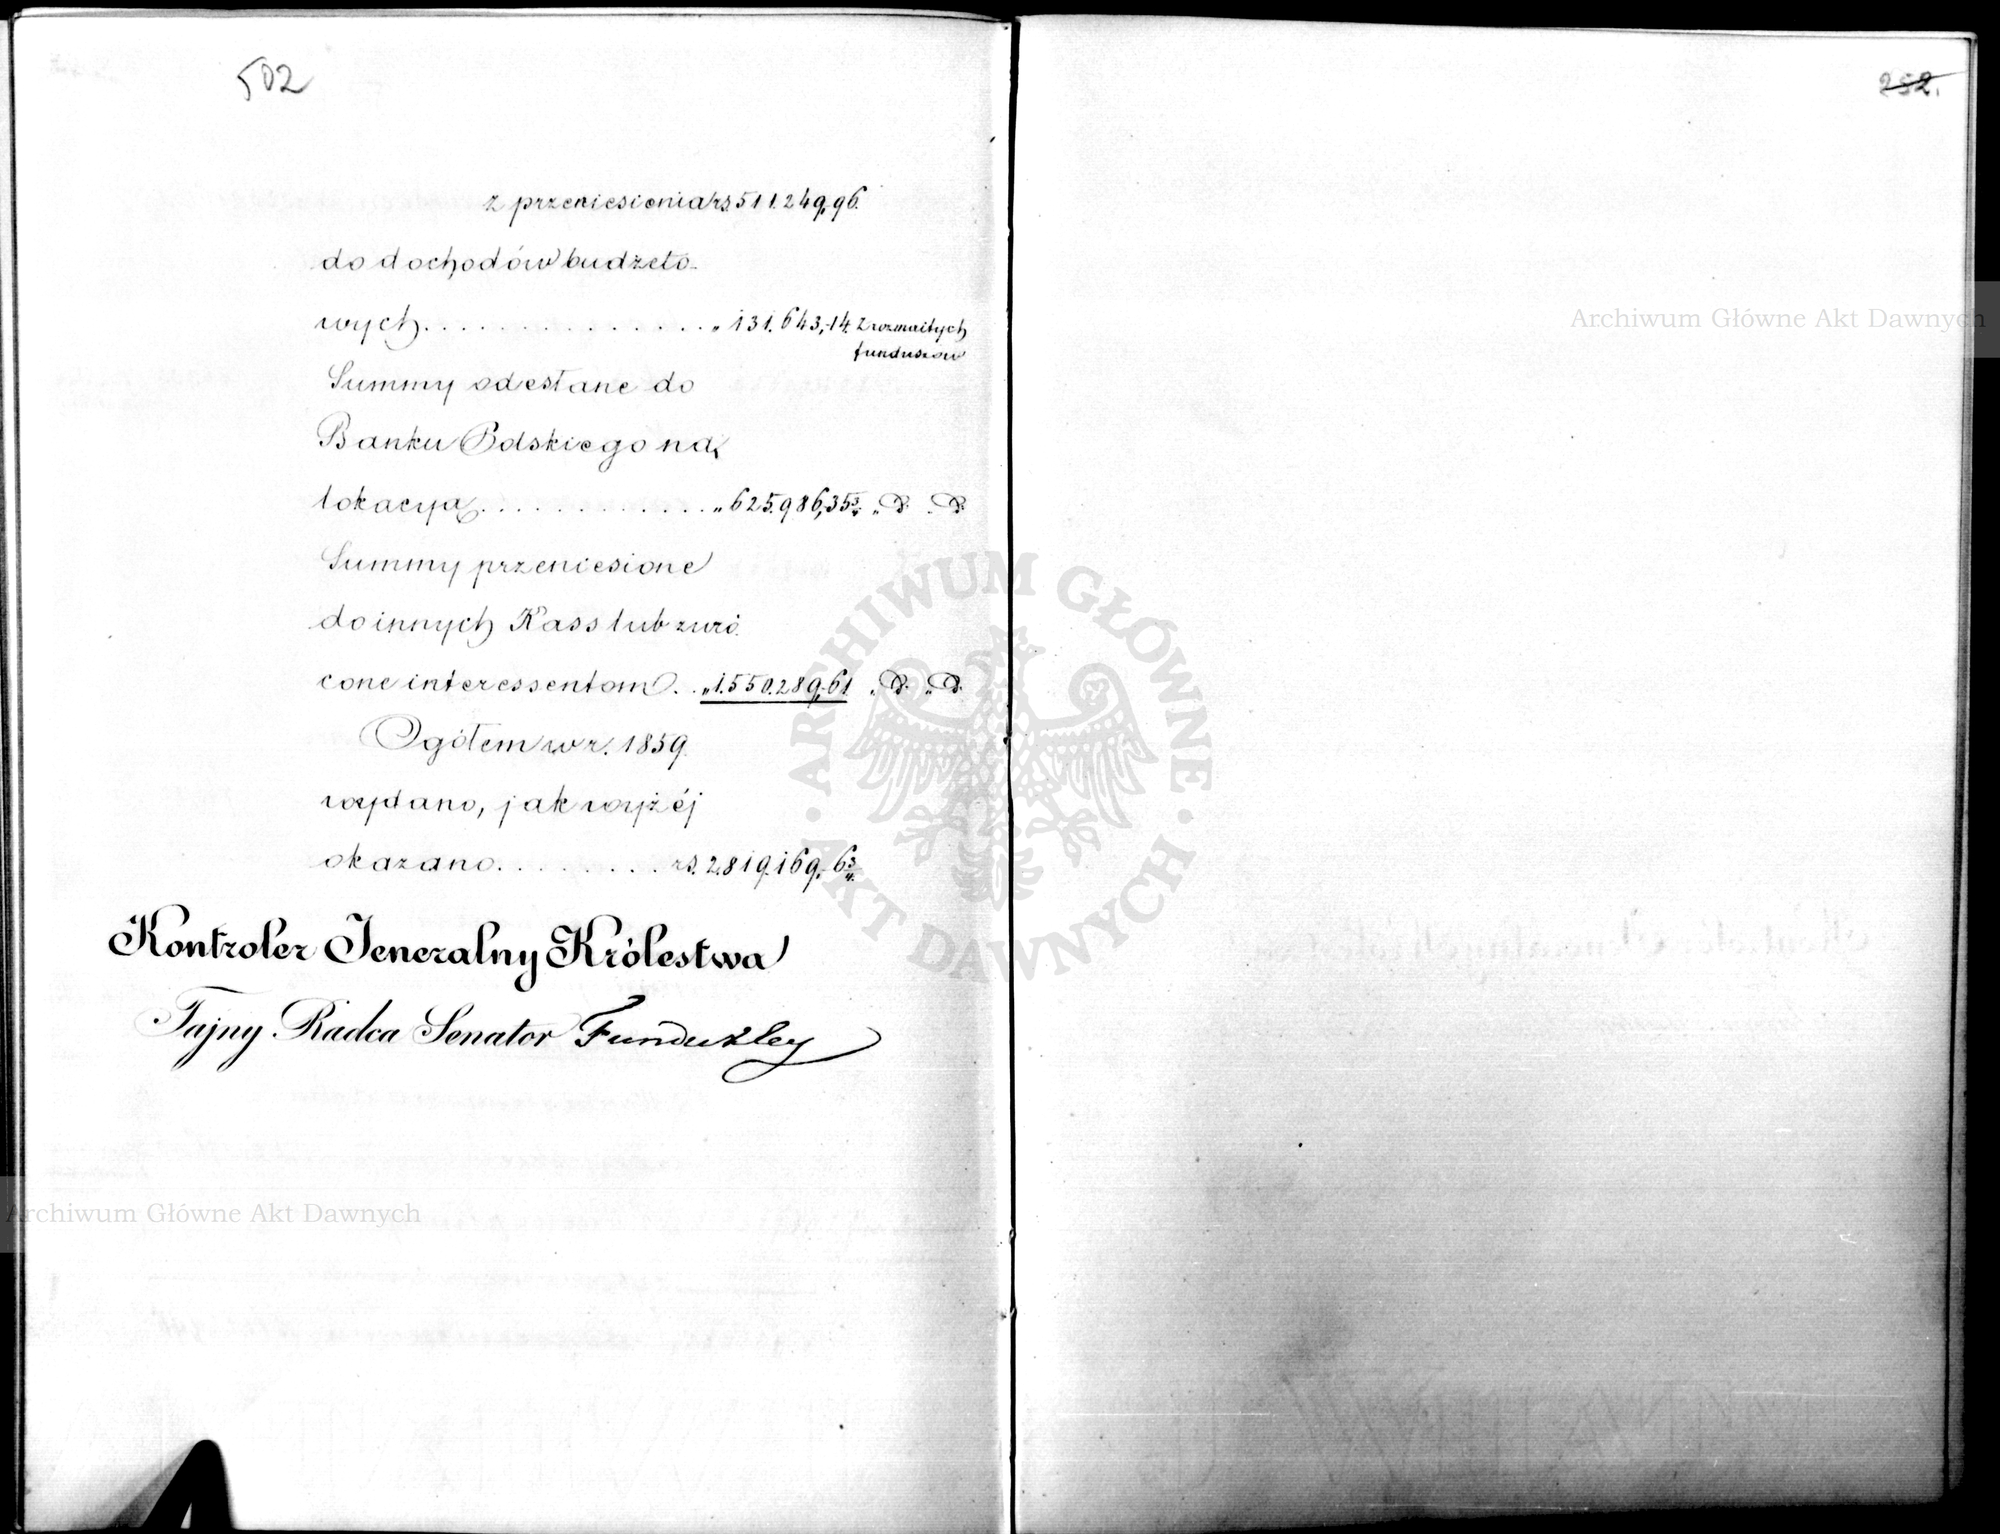 502
252.
z przeniesienia rs. 511.249,96.
do dochodów budżeto-
wych . . . . . . . . . . . . . . . „ 131.643,-14. z rozmaitych
funduszów
Summy odesłane do
Banku Polskiego na
lokacyą . . . . . . . . . . . . „ 625.986,35¾ „ D. „ D.
Summy przeniesione
do innych Kass lub zwró-
cone interessentom . . „ 1.550.289,-61 „ D. „ D.
Ogółem w r. 1859.
wydano, jak wyżéj
okazano . . . . . . . . rs. 2.819.169,-6¾.
Kontroler Jeneralny Królestwa
Tajny Radca Senator Fundukley
Archiwum Główne Akt Dawnych
Archiwum Główne Akt Dawnych
ARCHIWUM GŁÓWNE · AKT DAWNYCH ·